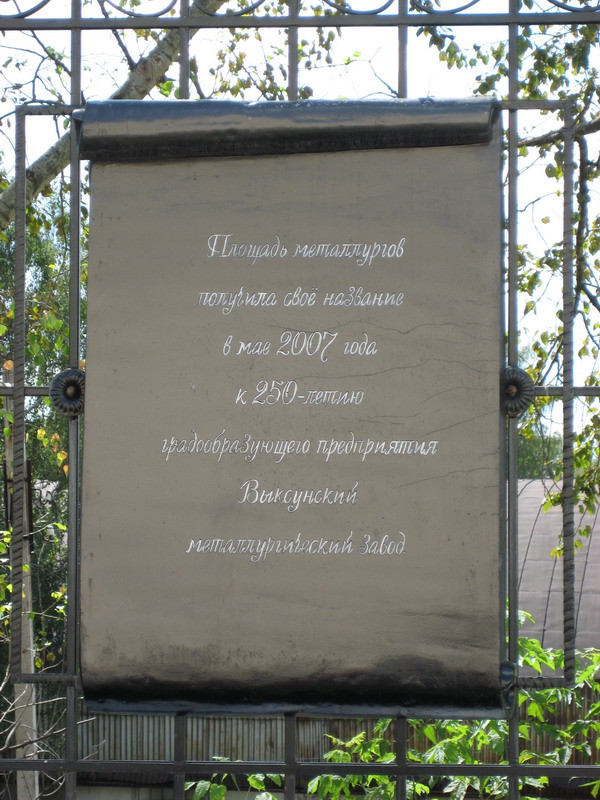 Площадь металлургов
получила своё название
в мае 2007 года
к 250-летию
градообразующего предприятия
Выксунский
металлургический завод